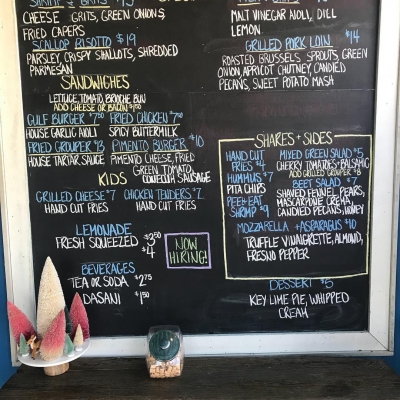 SHRIMP & GRITS $15
CHEESE GRITS, GREEN ONIONS,
FRIED CAPERS
SCALLOP RISOTTO $19
PARSLEY, CRISPY SHALLOTS, SHREDDED
PARMESAN
SANDWICHES
LETTUCE, TOMATO, BRIOCHE BUN
ADD CHEESE OR BACON
GULF BURGER $7.50 FRIED CHICKEN
HOUSE GARLIC AIOLI SPICY BUTTERMILK
FRIED GROUPER $13 PIMENTO BURGER $10
HOUSE TARTAR SAUCE PIMENTO CHEESE, FRIED
GREEN TOMATO,
SAUSAGE
KIDS
GRILLED CHEESE $7 CHICKEN TENDERS $7
HAND CUT FRIES HAND CUT FRIES
LEMONADE
FRESH SQUEEZED $2.50
$4
NOW
HIRING!
BEVERAGES
TEA OR SODA $2.75
DASANI $1.50
MALT VINEGAR AIOLI, DILL
LEMON
GRILLED PORK LOIN $14
ROASTED BRUSSELS SPROUTS, GREEN
ONION, APRICOT CHUTNEY, CANDIED
PECANS, SWEET POTATO MASH
SHARES + SIDES
HAND CUT
FRIES $4
HUMMUS $7
PITA CHIPS
PEEL & EAT
SHRIMP $9
MIXED GREEN SALAD $5
CHERRY TOMATOES + BALSAMIC
ADD GRILLED GROUPER $8
BEET SALAD $7
SHAVED FENNEL, PEARS,
MASCARPONE CREMA,
CANDIED PECANS, HONEY
MOZZARELLA + ASPARAGUS $10
TRUFFLE VINAIGRETTE, ALMOND,
FRESNO PEPPER
DESSERT $5
KEY LIME PIE, WHIPPED
CREAM